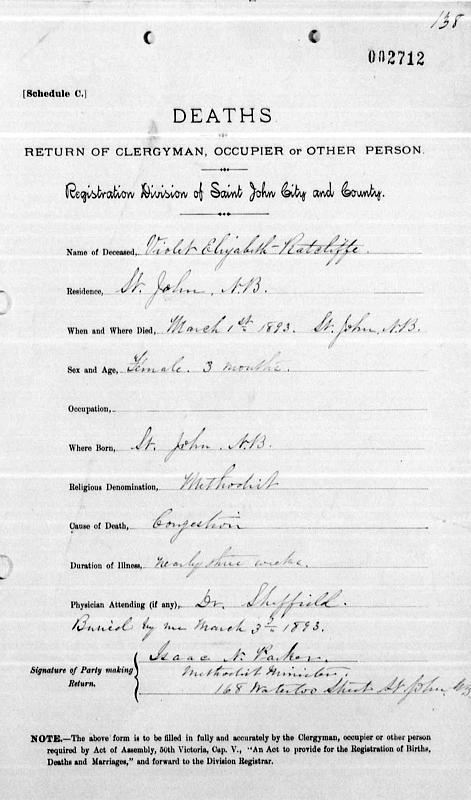 138
002712
[Schedule C.]
DEATHS
RETURN OF CLERGYMAN, OCCUPIER or OTHER PERSON.
Registration Division of Saint John City and County.
Name of Deceased, Violet Elizabeth Ratcliffe.
Residence, St. John, N.B.
When and Where Died, March 1st 1893. St. John, N.B.
Sex and Age, Female. 3 months.
Occupation,
Where Born, St. John N.B.
Religious Denomination, Methodist
Cause of Death, Congestion
Duration of Illness, nearly three weeks.
Physician Attending (if any), Dr. Sheffield.
Buried by me March 3rd 1893.
Signature of Party making Return. Isaac N. Parker.
Methodist Minister.
168 Waterloo Street St. John N.B.
NOTE.—The above form is to be filled in fully and accurately by the Clergyman, occupier or other person
required by Act of Assembly, 50th Victoria, Cap. V., "An Act to provide for the Registration of Births,
Deaths and Marriages," and forward to the Division Registrar.